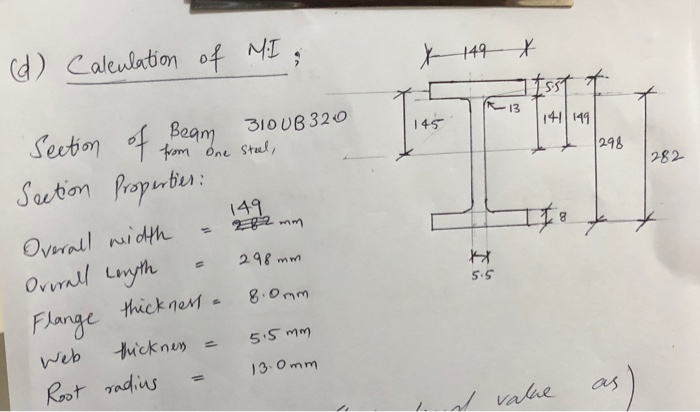 (d) Calculation of M.I ;
149
5.5
13
145
141
149
298
282
Section of Beam 310UB320
from One Steel,
Section Properties:
149
Overall width = 282 mm
Overall Length = 298 mm
Flange thickness = 8.0mm
8
Web thickness = 5.5 mm
5.5
Root radius = 13.0mm
value as)